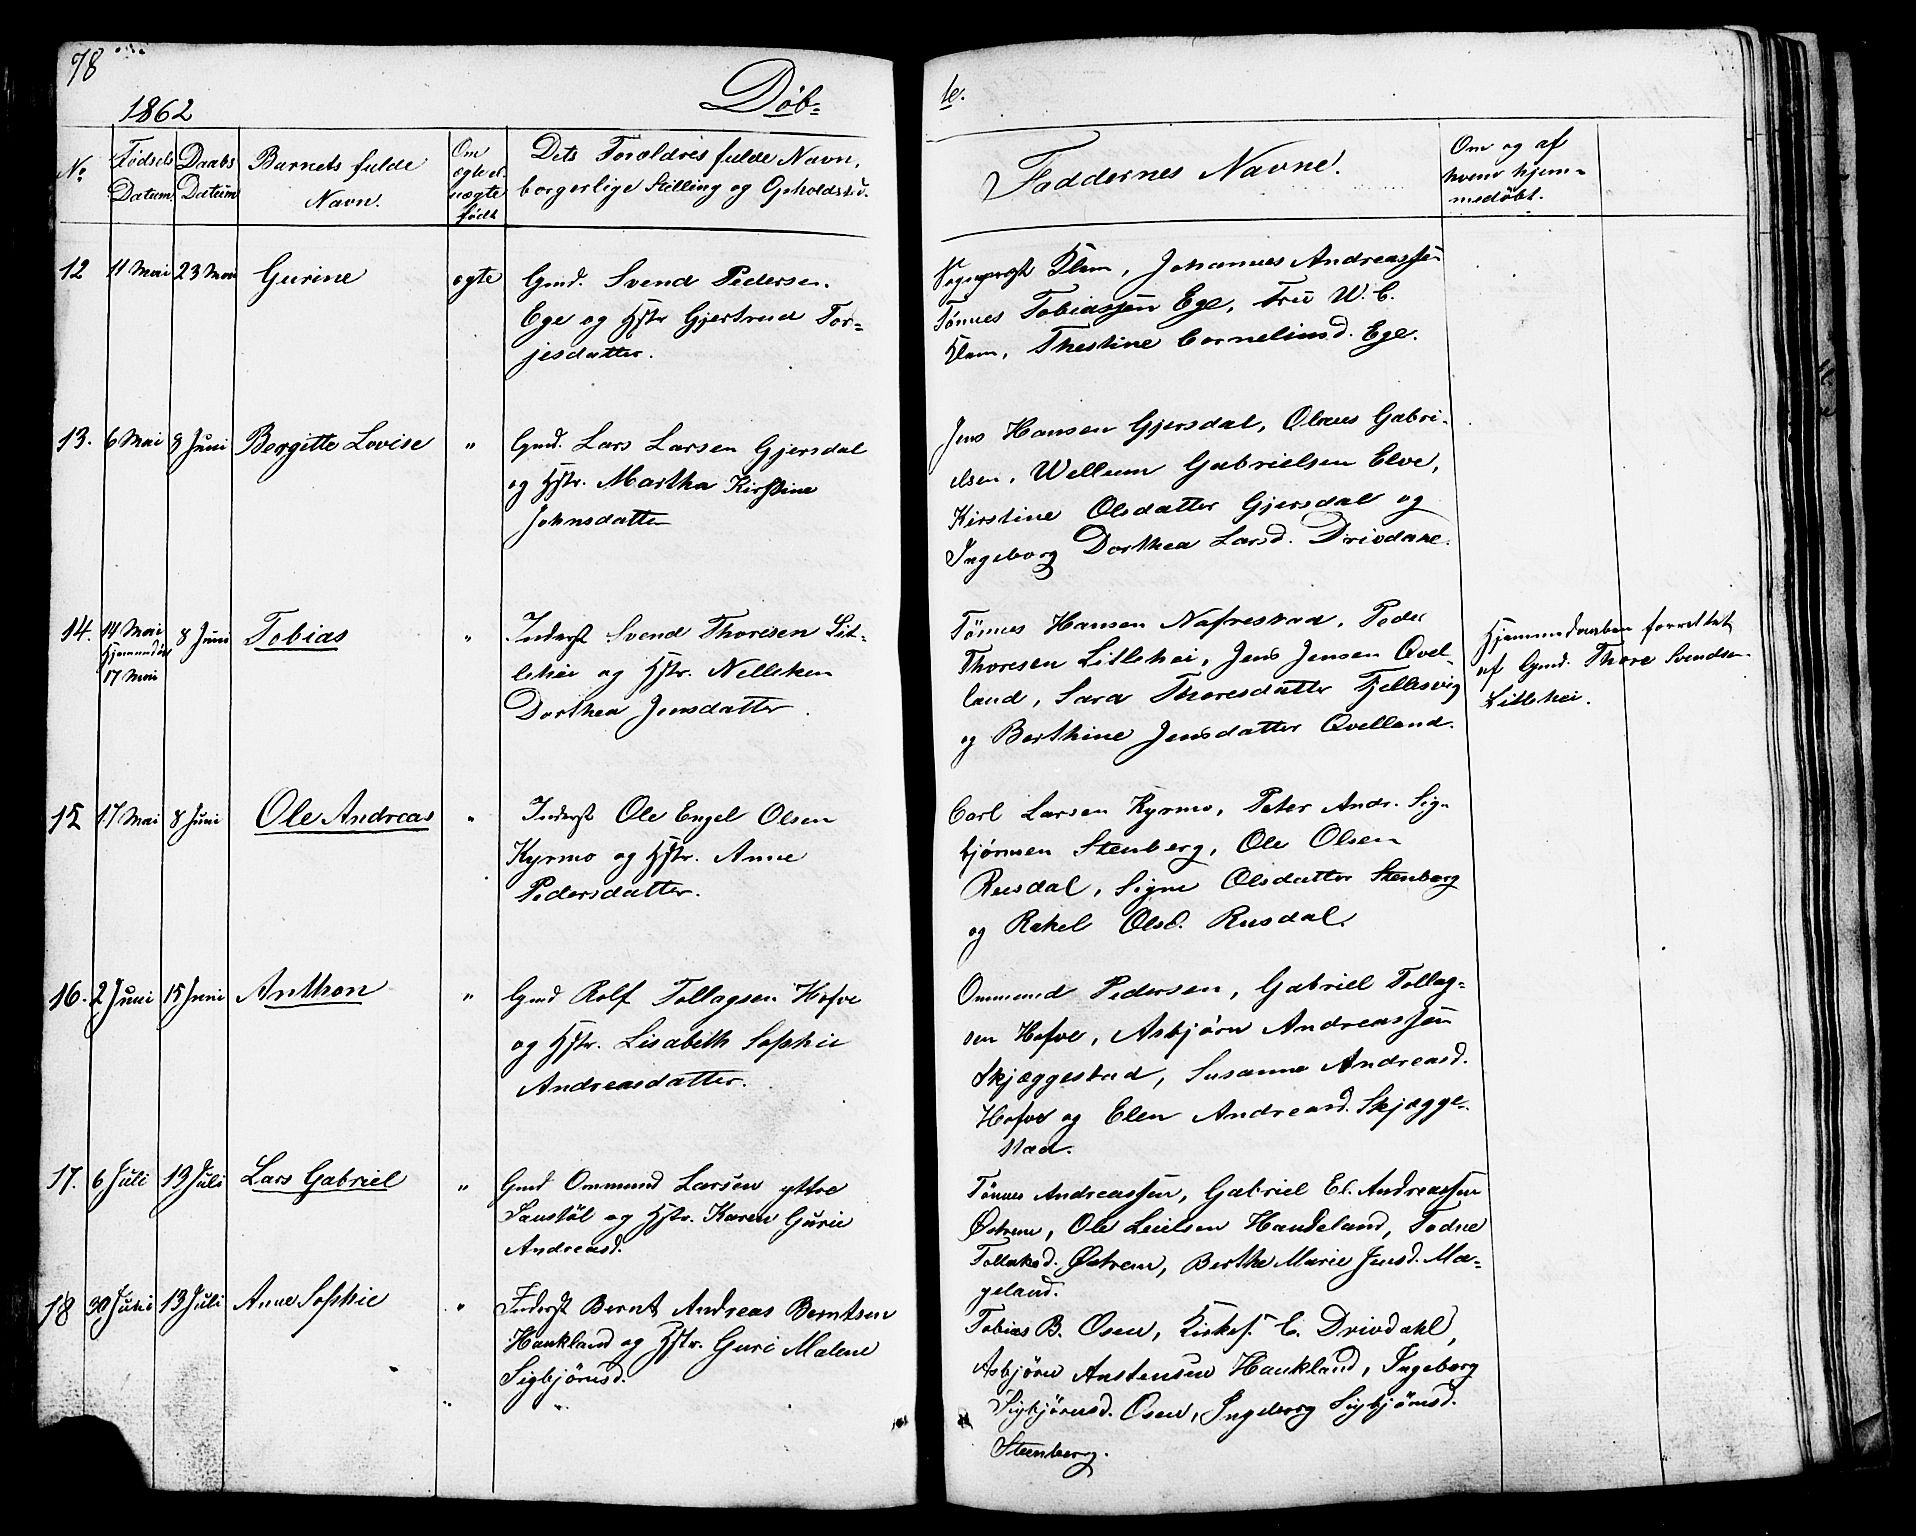 78
1862
Døb-
te.
No
Fødsels Datum
Daabs Datum
Barnets fulde
Navn.
Om
ægte el.
uægte
født
Dets Forældres fulde Navn,
borgerlige Stilling og Opholdsted.
Faddernes Navne.
Om og af
hvem hjem-
medöbt.
12 11 Mai 23 Mai Gurine ægte Gmd. Svend Pedersen
Ege og Hstr Gjertrud Tor-
jesdatter.
Sogneprest Klem, Johannes Andreassen
Tønnes Tobiassen Ege, Fru W. C.
Klem, Thestine Corneliusd. Ege.
13. 6 Mai 8 Juni Bergitte Lovise " Gmd. Lars Larsen Gjersdal
og Hstr. Martha Kirstine
Johnsdatter
Jens Hansen Gjersdal, Olaus Gabri-
elsen, Wellum Gabrielsen Elve,
Kirstine Olsdatter Gjersdal og
Ingeborg Dorthea Larsd. Drivdahl.
14. 14 Mai 8 Juni Tobias " Inderst Svend Thoresen Lit-
Hjemmedøbt
17 Mai
lehei og Hstr. Nelleken
Dorthea Jensdatter.
Tönnes Hansen Nafrestad, Peder
Thoresen Littehei, Jens Jensen Qvel-
land, Sara Thoresdatter Fjellesvig
og Berthine Jensdatter Qvelland.
Hjemmedaaben forrettet
af Gmd. Thore Svendsen
Littehei.
15 17 Mai 8 Juni Ole Andreas " Inderst Ole Engel Olsen
Kyrmo og Hstr. Anne
Pedersdatter.
Carl Larsen Kyrmo, Peter Andr. Sig-
bjørnsen Stenberg, Ole Olsen
Rusdal, Signe Olsdatter Stenberg
og Rakel Olsd. Rusdal.
16. 2 Juni 15 Juni Anthon " Gmd Rolf Tollagsen Hofve
og Hstr. Lisabeth Sophie
Andreasdatter.
Ommund Pedersen, Gabriel Tollag-
sen Hofve, Asbjørn Andreassen
Skjæggestad, Susanne Andreasd.
Hofve og Elen Andreasd. Skjægge-
stad.
17. 6 Juli 13 Juli Lars Gabriel " Gmd Ommund Larsen yttre
Saustöl og Hstr. Karen Gurie
Andreasd.
Tönnes Andreassen, Gabriel El. Andreassen
Østrem, Ole Leielsen Haudeland, Todne
Tollaksd. Østrem, Berthe Marie Jensd. Ma-
geland.
18 30 Juni 13 Juli Anne Sophie " Inderst Bernt Andreas Berntsen
Haukland og Hstr. Guri Malene
Sigbjörnsd.
Tobias B. Osen, Kirkes. C. Drivdahl,
Asbjörn Anstensen Haukland, Ingeborg
Sigbjörnsd. Osen, Ingeborg Sigbjörnsd.
Stenberg.